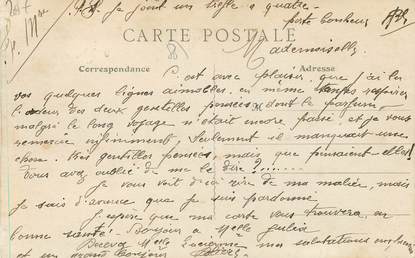 Je joint un trefle a quatre
porte bonheur
CARTE POSTALE
Correspondance Adresse
Mademoiselle
C'est avec plaisir que j'ai lu
vos quelques lignes aimables, en même temps respirer
l'odeur des deux gentilles pensées dont le parfum,
malgré le long voyage n'était encore passé et je vous
remercie infiniment. Seulement il manquait une
chose. Ces gentilles pensées, mais que pensaient-elles
Vous avez oublié de me le dire ?......
Je vous voit d'ici rire de ma malice, mais
je sais d'avance que je suis pardonné
J'espère que ma carte vous trouvera en
bonne santé. Bonjour à Melle Julia
Recevez Melle Lucienne mes salutations
et un grand bonjour